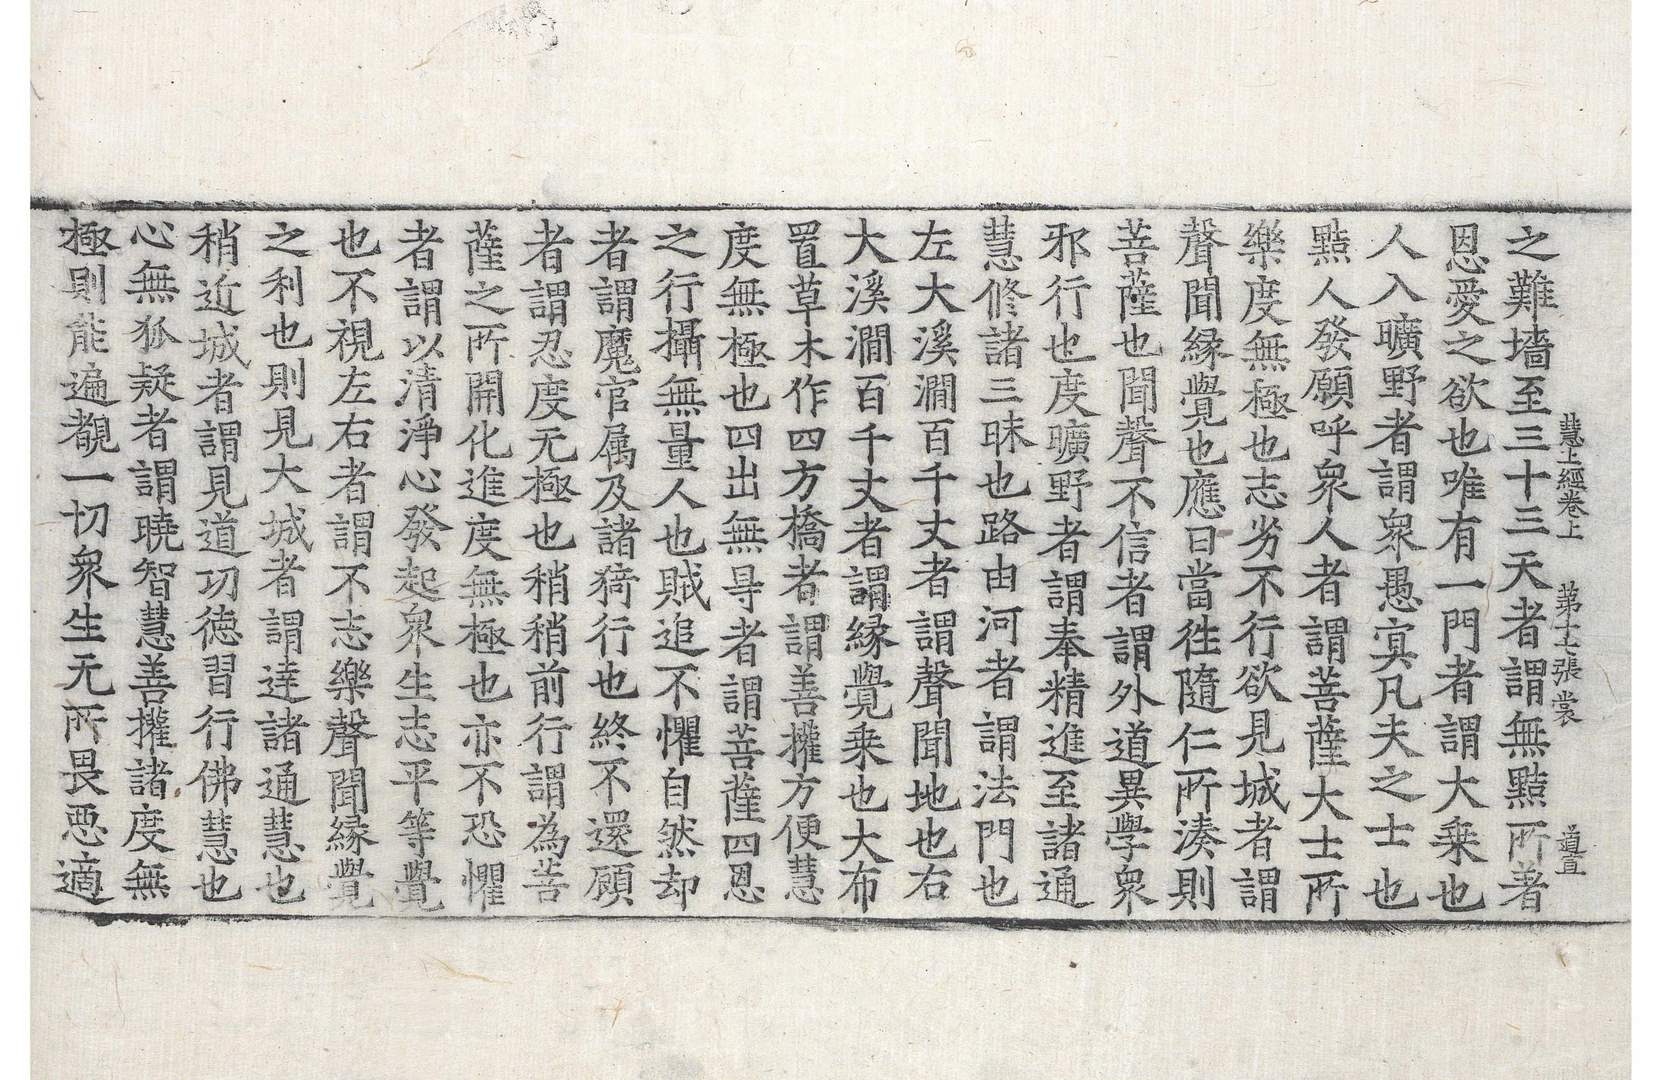 慧上經卷上 第十七張 裳 道宜
之難墻至三十三天者謂無㸃所著
恩愛之欲也唯有一門者謂大乗也
人入曠野者謂衆愚㝠凡夫之士也
㸃人發願呼衆人者謂菩薩大士所
樂度無極也志劣不行欲見城者謂
聲聞縁覺也應曰當徃隨仁所湊則
菩薩也聞聲不信者謂外道異學衆
邪行也度曠野者謂奉精進至諸通
慧修諸三昧也路由河者謂法門也
左大溪澗百千丈者謂聲聞地也右
大溪澗百千丈者謂縁覺乗也大布
置草木作四方橋者謂善攉方便慧
度無極也四出無㝵者謂菩薩四恩
之行攝無量人也賊追不懼自然却
者謂魔官属及諸猗行也終不還顧
者謂忍度无極也稍稍前行謂為菩
薩之所開化進度無極也亦不恐懼
者謂以清淨心發起衆生志平等覺
也不視左右者謂不志樂聲聞縁覺
之利也則見大城者謂逹諸通慧也
稍近城者謂見道㓛徳習行佛慧也
心無狐疑者謂曉智慧善攉諸度無
極則能遍覩一切衆生无所畏惡適